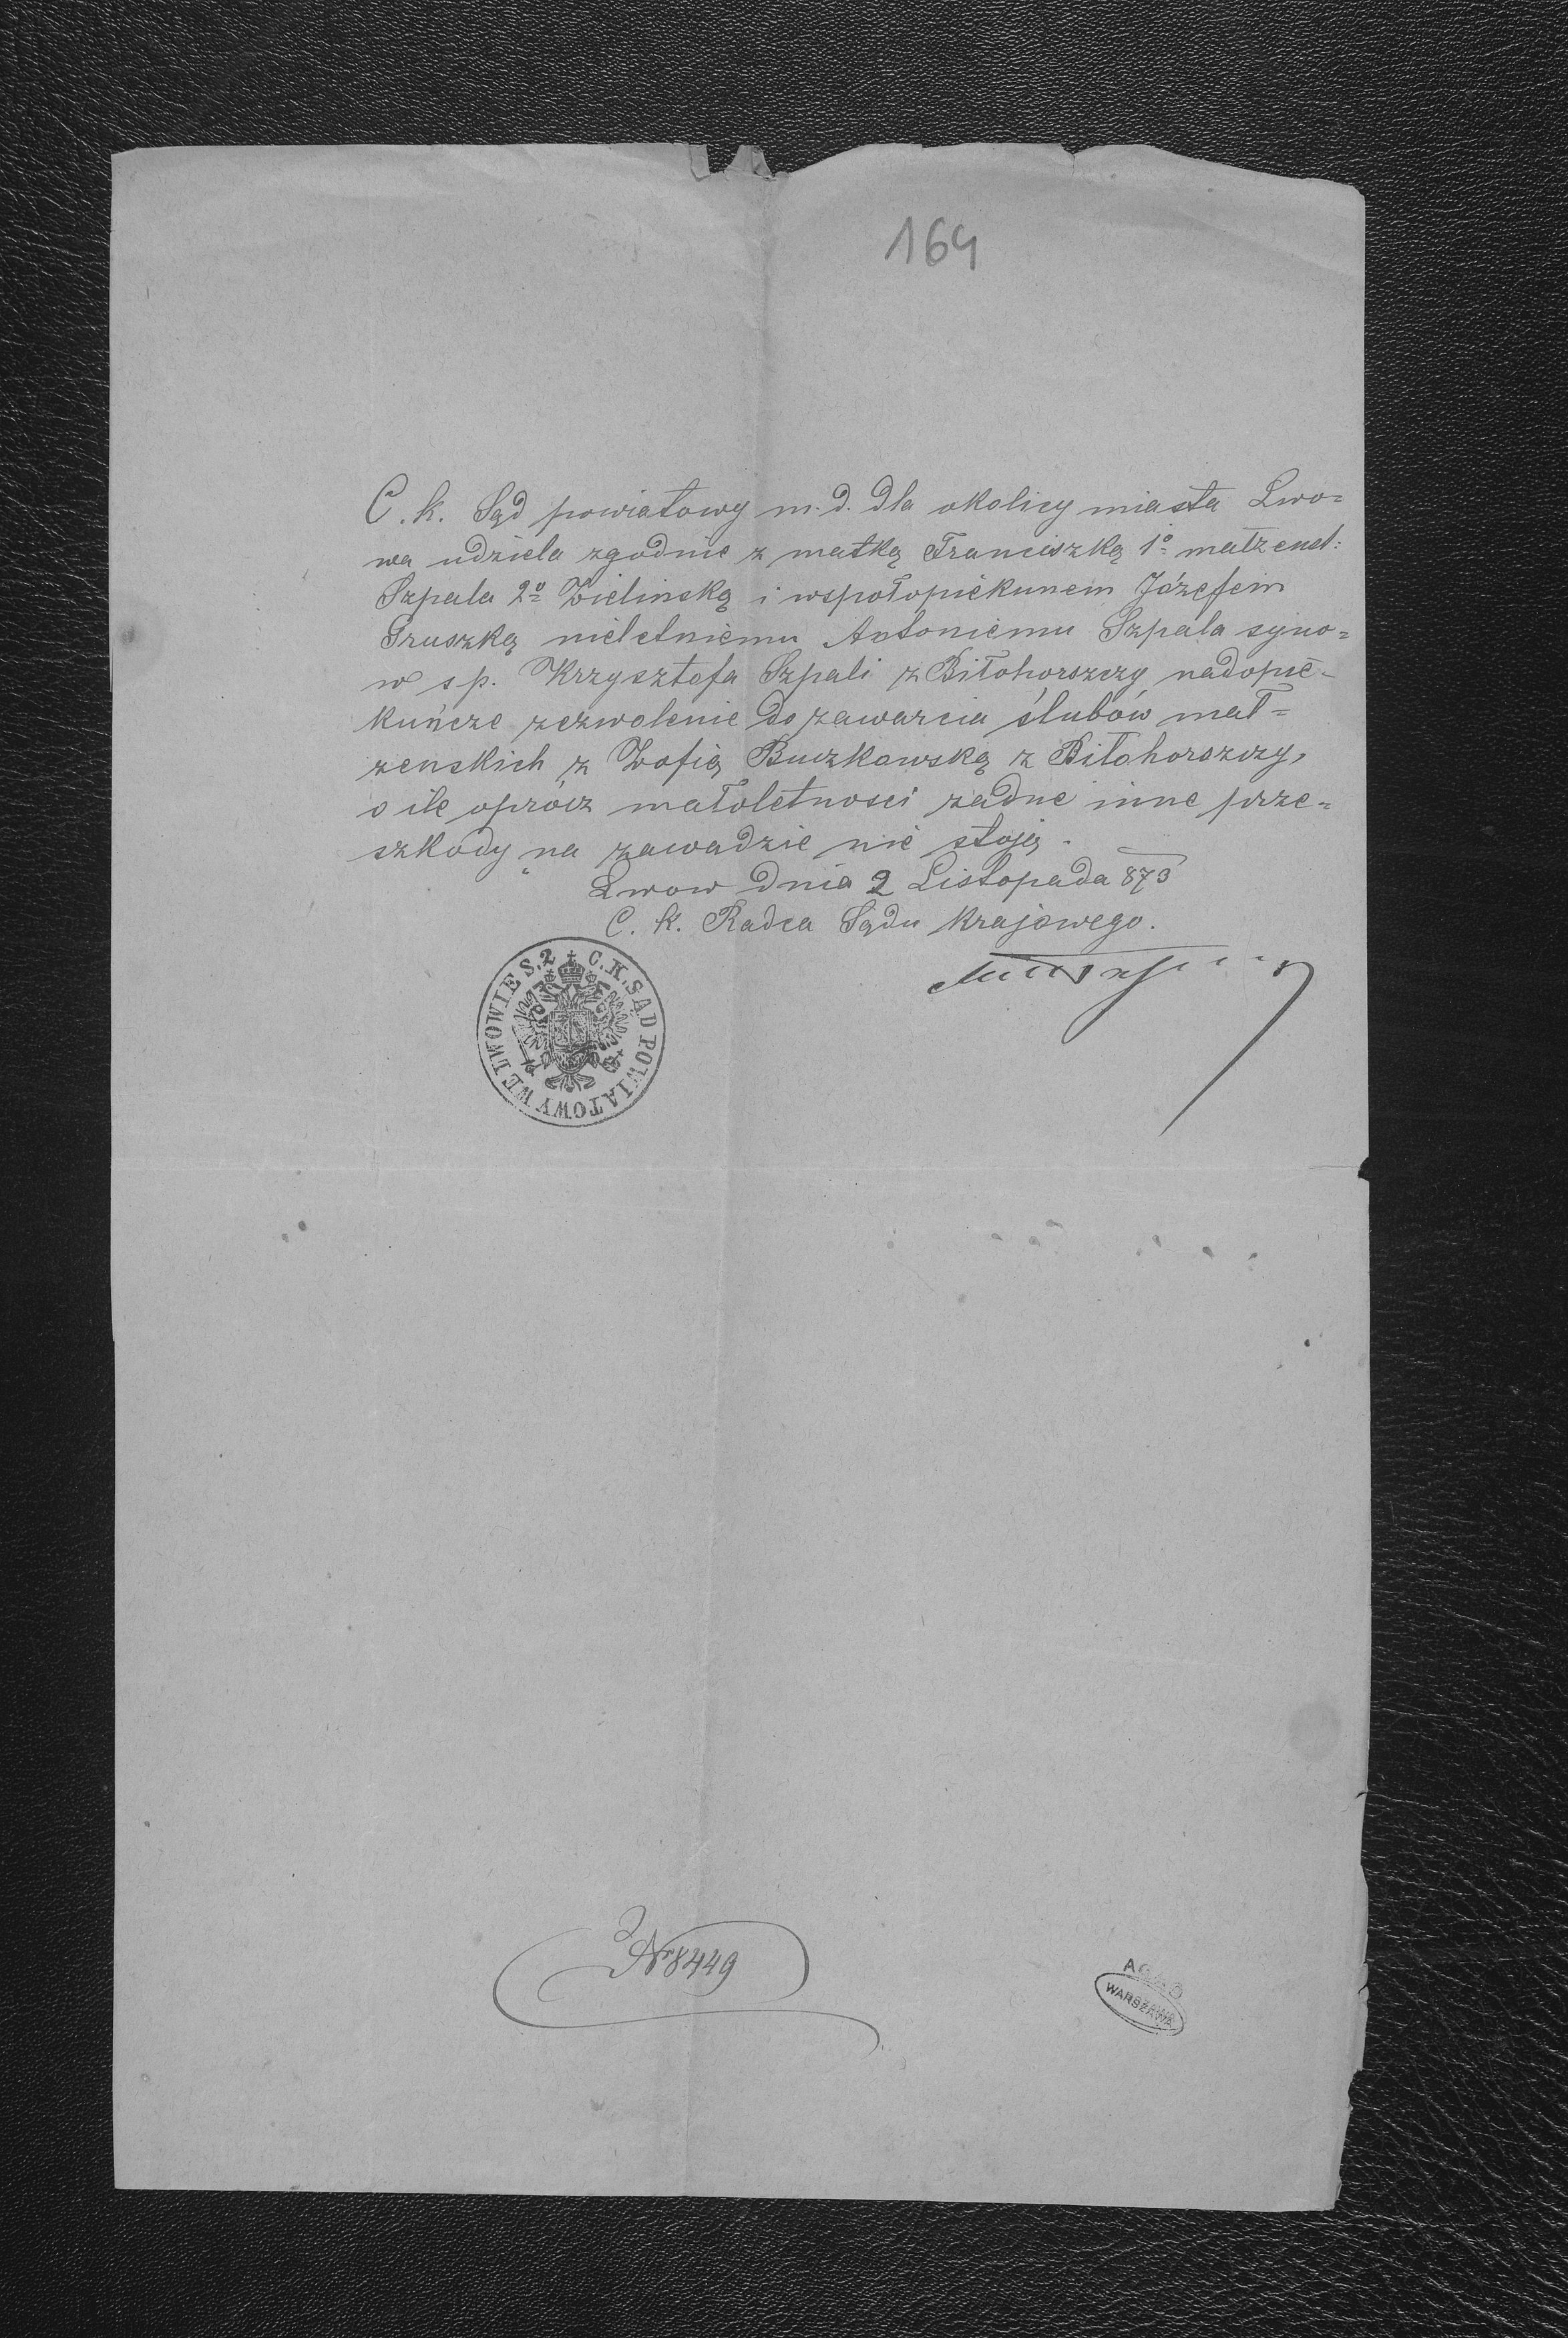 164
C. k. Sąd powiatowy m. d. dla okolicy miasta Lwo=
wa udziela zgodnie z matką Franciszką 1º małżenst:
Szpala 2º Zielinską i wspołopiekunem Józefem
Gruszką nieletniemu Antoniemu Szpala syno=
w sp. Krzysztofa Szpali z Biłohorszczy nadopie-
kuńcze zezwolenie do zawarcia ślubów mał=
zenskich z Zofią Buczkowską z Biłohorszczy,
o ile oprócz małoletnosci zadne inne prze=
szkody na zawadzie nie stoją.
Lwow dnia 2 Listopada 873
C. k. Radca Sądu krajowego.
C. K. SĄD POWIATOWY WE LWOWIE S. 2
Nr 8449
WARSZAWA